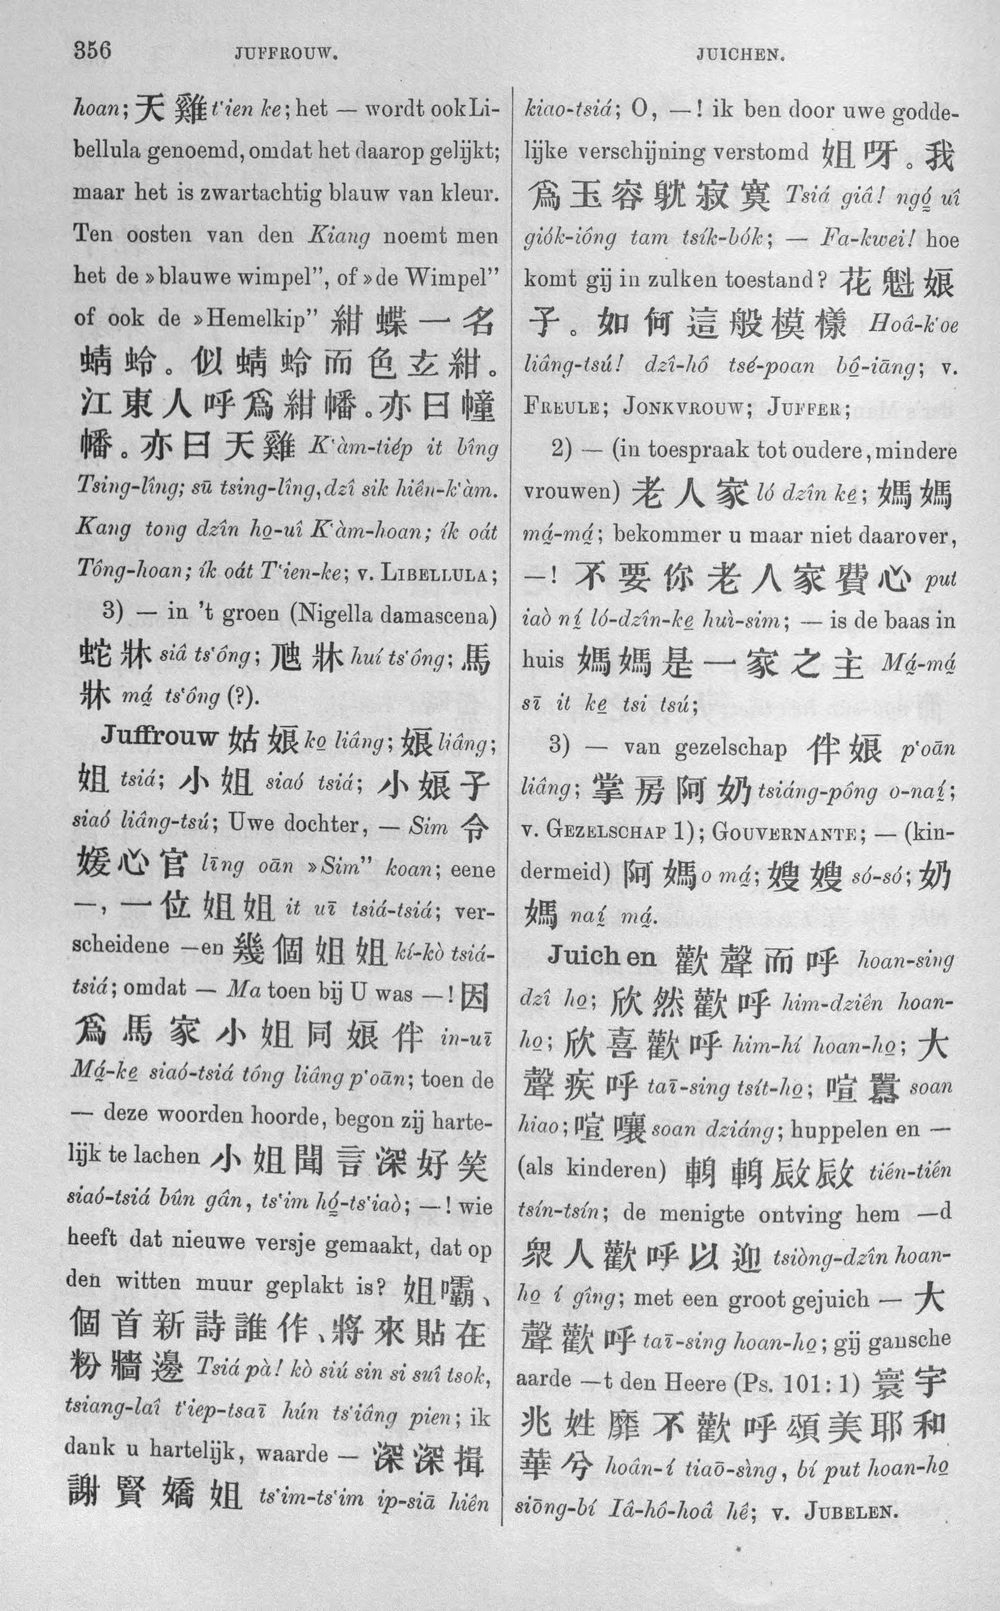 356 JUFFROUW. JUICHEN.
hoan; 天 雞 t'ien ke; het — wordt ook Li-
bellula genoemd, omdat het daarop gelijkt;
maar het is zwartachtig blauw van kleur.
Ten oosten van den Kiang noemt men
het de »blauwe wimpel”, of »de Wimpel”
of ook de »Hemelkip” 紺 蝶 一 名
蜻 蛉 。 似 蜻 蛉 而 色 玄 紺 。
江 東 人 呼 爲 紺 幡 。亦 曰 幢
幡 。亦 曰 天 雞 K'àm-tiép it bîng
Tsing-lîng; sū tsing-lîng, dzî sik hiên-k'àm.
Kang tong dzîn ho̱-uî K'àm-hoan; ík oát
Tông-hoan; ík oát T'ien-ke; v. LIBELLULA;
3) — in 't groen (Nigella damascena)
蛇 牀 siâ ts'ông; 虺 牀 huí ts'ông; 馬
牀 má̤ ts'ông (?).
Juffrouw 姑 娘 ko̱ liâng; 娘 liâng;
姐 tsiá; 小 姐 siaó tsiá; 小 娘 子
siaó liâng-tsú; Uwe dochter, — Sim 令
媛 心 官 līng oān »Sim” koan; eene
—, 一 位 姐 姐 it uī tsiá-tsiá; ver-
scheidene —en 幾 個 姐 姐 kí-kò tsiá-
tsiá; omdat — Ma toen bij U was —! 因
爲 馬 家 小 姐 同 娘 伴 in-uī
Má̤-ke̱ siaó-tsiá tông liâng p'oān; toen de
— deze woorden hoorde, begon zij harte-
lijk te lachen 小 姐 聞 言 深 好 笑
siaó-tsiá bûn gân, ts'im hó̤-ts'iaò; —! wie
heeft dat nieuwe versje gemaakt, dat op
den witten muur geplakt is? 姐 嚅 、
個 首 新 詩 誰 作 、將 來 貼 在
粉 牆 邊 Tsiá pà! kò siú sin si suî tsok,
tsiang-laî t'iep-tsaī hún ts'iâng pien; ik
dank u hartelijk, waarde — 深 深 揖
謝 賢 嬌 姐 ts'im-ts'im ip-siā hiên
kiao-tsiá; O, —! ik ben door uwe godde-
lijke verschijning verstomd 姐 呀 。我
爲 玉 容 躭 寂 寞 Tsiá giâ! ngó̤ uî
giók-iông tam tsík-bók; — Fa-kwei! hoe
komt gij in zulken toestand? 花 魁 娘
子 。 如 何 這 般 模 樣 Hoâ-k'oe
liâng-tsú! dzî-hô tsé-poan bô̱-iāng; v.
FREULE; JONKVROUW; JUFFER;
2) — (in toespraak tot oudere, mindere
vrouwen) 老 人 家 ló dzîn ke̱; 媽 媽
má̤-má̤; bekommer u maar niet daarover,
—! 不 要 你 老 人 家 費 心 put
iaò ní̤ ló-dzîn-ke̱ huì-sim; — is de baas in
huis 媽 媽 是 一 家 之 主 Má̤-má̤
sī it ke̱ tsi tsú;
3) — van gezelschap 伴 娘 p'oān
liâng; 掌 房 阿 奶 tsiáng-pông o-naí̤;
v. GEZELSCHAP 1); GOUVERNANTE; — (kin-
dermeid) 阿 媽 o má̤; 嫂 嫂 só-só; 奶
媽 naí̤ má̤.
Juichen 歡 聲 而 呼 hoan-sing
dzî ho̱; 欣 然 歡 呼 him-dziên hoan-
ho̱; 欣 喜 歡 呼 him-hí hoan-ho̱; 大
聲 疾 呼 taī-sing tsít-ho̱; 喧 囂 soan
hiao; 喧 嚷 soan dziáng; huppelen en —
(als kinderen) tién-tién
tsín-tsín; de menigte ontving hem —d
衆 人 歡 呼 以 迎 tsiòng-dzîn hoan-
ho̱ í gîng; met een groot gejuich — 大
聲 歡 呼 taī-sing hoan-ho̱; gij gansche
aarde —t den Heere (Ps. 101: 1) 寰 宇
兆 姓 靡 不 歡 呼 頌 美 耶 和
華 兮 hoân-í tiaō-sìng, bí put hoan-ho̱
siōng-bí Iâ-hô-hoâ hê; v. JUBELEN.